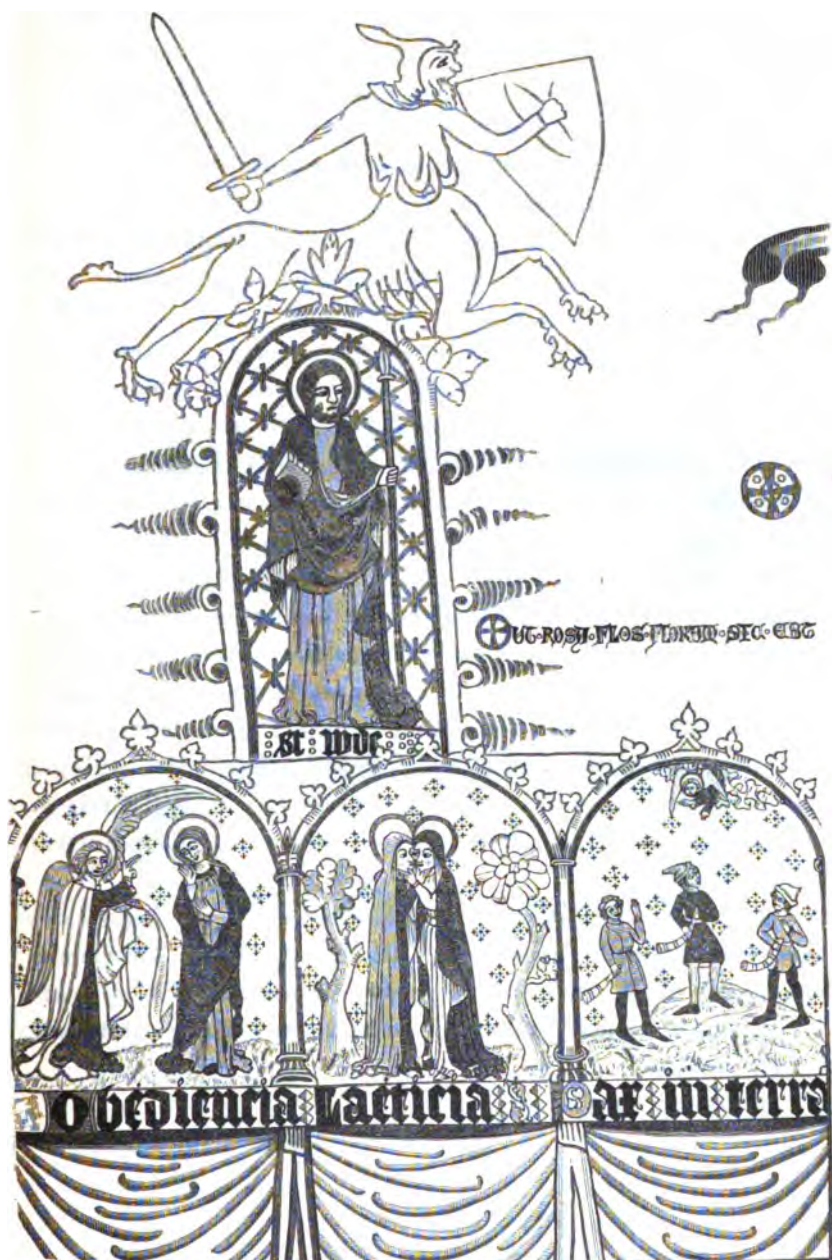 UT·ROSA·FLOS·FLORUM·SIC·EST
st iude
obediencia Laeticia Pax in terra